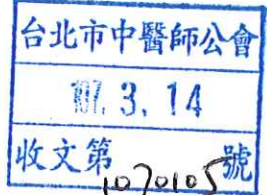 台北市中醫師公會
107. 3. 14
收文第 1070105 號